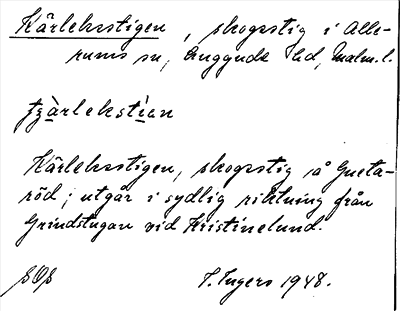 Kärleksstigen, skogsstig i Alle-
rums sn, Luggude hd, Malm. l.
tʒärlekstian
Kärleksstigen, skogsstig på Dueta-
röd; utgår i sydlig riktning från
Grindstugan vid Kristinelund.
T. Ingers 1948.